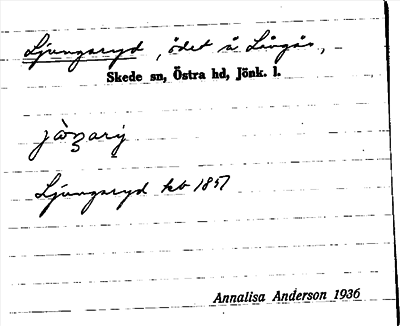 Ljungaryd, ödet å Lövås,
Skede sn, Östra hd, Jönk. l.
Ljungaryd kb 1857
Annalisa Anderson 1936